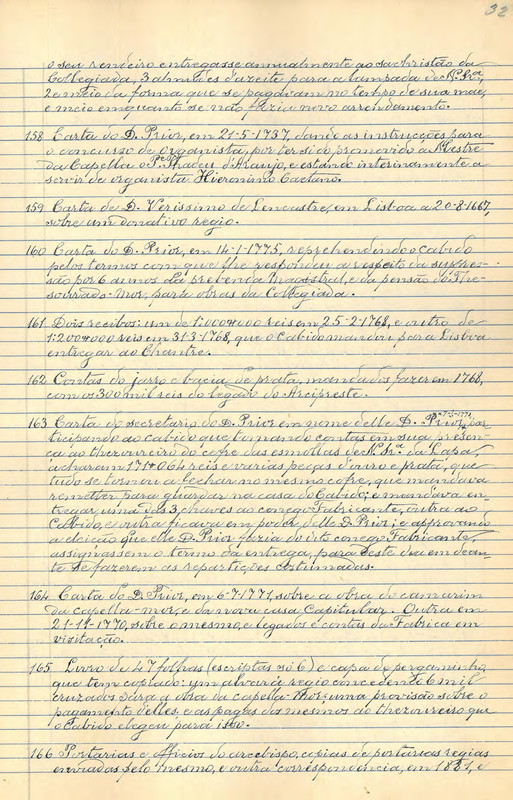 32
o seu rendeiro entregasse annualmente ao sachristão da
Collegiada, 3 almudes d'azeite para a lampada de N. Srª,
2 e meio da forma que se pagavam no tempo de sua mãe,
e meio emquanto se não fazia novo arrendamento.
158 Carta do D. Prior, em 21-5-1737, dando as instrucções para
o concurso de organista, por ter sido promovido a Mestre
da Capella o Pe Thadeu d'Araujo, e estando interinamente a
servir de organista Hieronimo Caetano.
159 Carta de D. Verissimo de Lencastre, em Lisboa a 20-8-1667,
sobre um donativo regio.
160 Carta do D. Prior, em 14-1-1775, reprehendendo o Cabido
pelos termos com que lhe respondeu a respeito da suppres-
são por 6 annos da prebenda Magistral, e da pensão do The-
soureiro-Mor, para obras da Collegiada.
161 Dois recibos: um de 1:000$000 reis em 25-2-1768, e outro de
1:200$000 reis em 31-3-1768, que o Cabido mandou para Lisboa
entregar ao Chantre.
162 Contas do jarro e bacia de prata, mandados fazer em 1768,
com os 300 mil reis do legado do Arcipreste.
163 Carta do secretario do D. Prior em nome delle D. Prior, par-
ticipando ao cabido que tomando contas em sua presen-
ça ao thezoureiro do cofre das esmollas de N. Srª da Lapa,
acharam 171$064 reis e varias peças d'ouro e prata, que
tudo se tornou a fechar no mesmo cofre, que mandava
remetter para guardar na casa do Cabido; e mandava en-
tregar uma das 3 chaves ao conego Fabricante, outra ao
Cabido, e outra ficava em poder delle D. Prior; e approvando
a eleição que elle D. Prior fazia do dito conego Fabricante,
assignassem o termo da entrega, para deste dia em dean-
te se fazerem as repartições costumadas.
164 Carta do D. Prior, em 6-7-1771, sobre a obra do camarim
da capella-mor, e da nova casa Capitular. Outra em
21-11-1770, sobre o mesmo, e legados e contas da Fabrica em
visitação.
165 Livro de 47 folhas (escriptas só 6) e capa de pergaminho,
que tem copiado: um alvará regio concedendo 6 mil
cruzados para a obra da capella-Mor, uma provisão sobre o
pagamento delles, e as pagas dos mesmos ao thezoureiro que
o Cabido elegeu para isso.
166 Portarias e officios do arcebispo, copias de portarias regias
enviados pelo mesmo, e outra correspondencia, em 1831, e